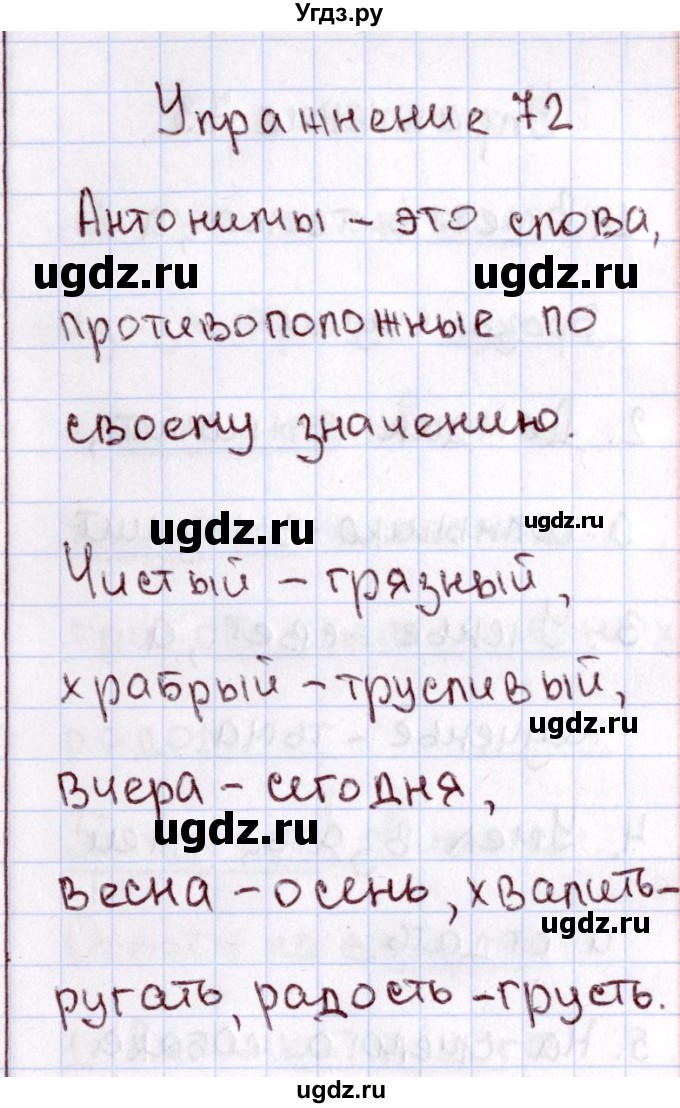 Угдз.ру
Упражнение 72
Антонимы - это слова,
ugdz.ru ugdz.ru
противоположные по
своему значению.
ugdz.ru ugdz.ru
Чистый - грязный,
храбрый - трусливый,
ugdz.ru
вчера - сегодня,
ugdz.ru
весна - осень, хвалить-
ugdz.ru
ругать, радость - грусть.
ugdz.ru